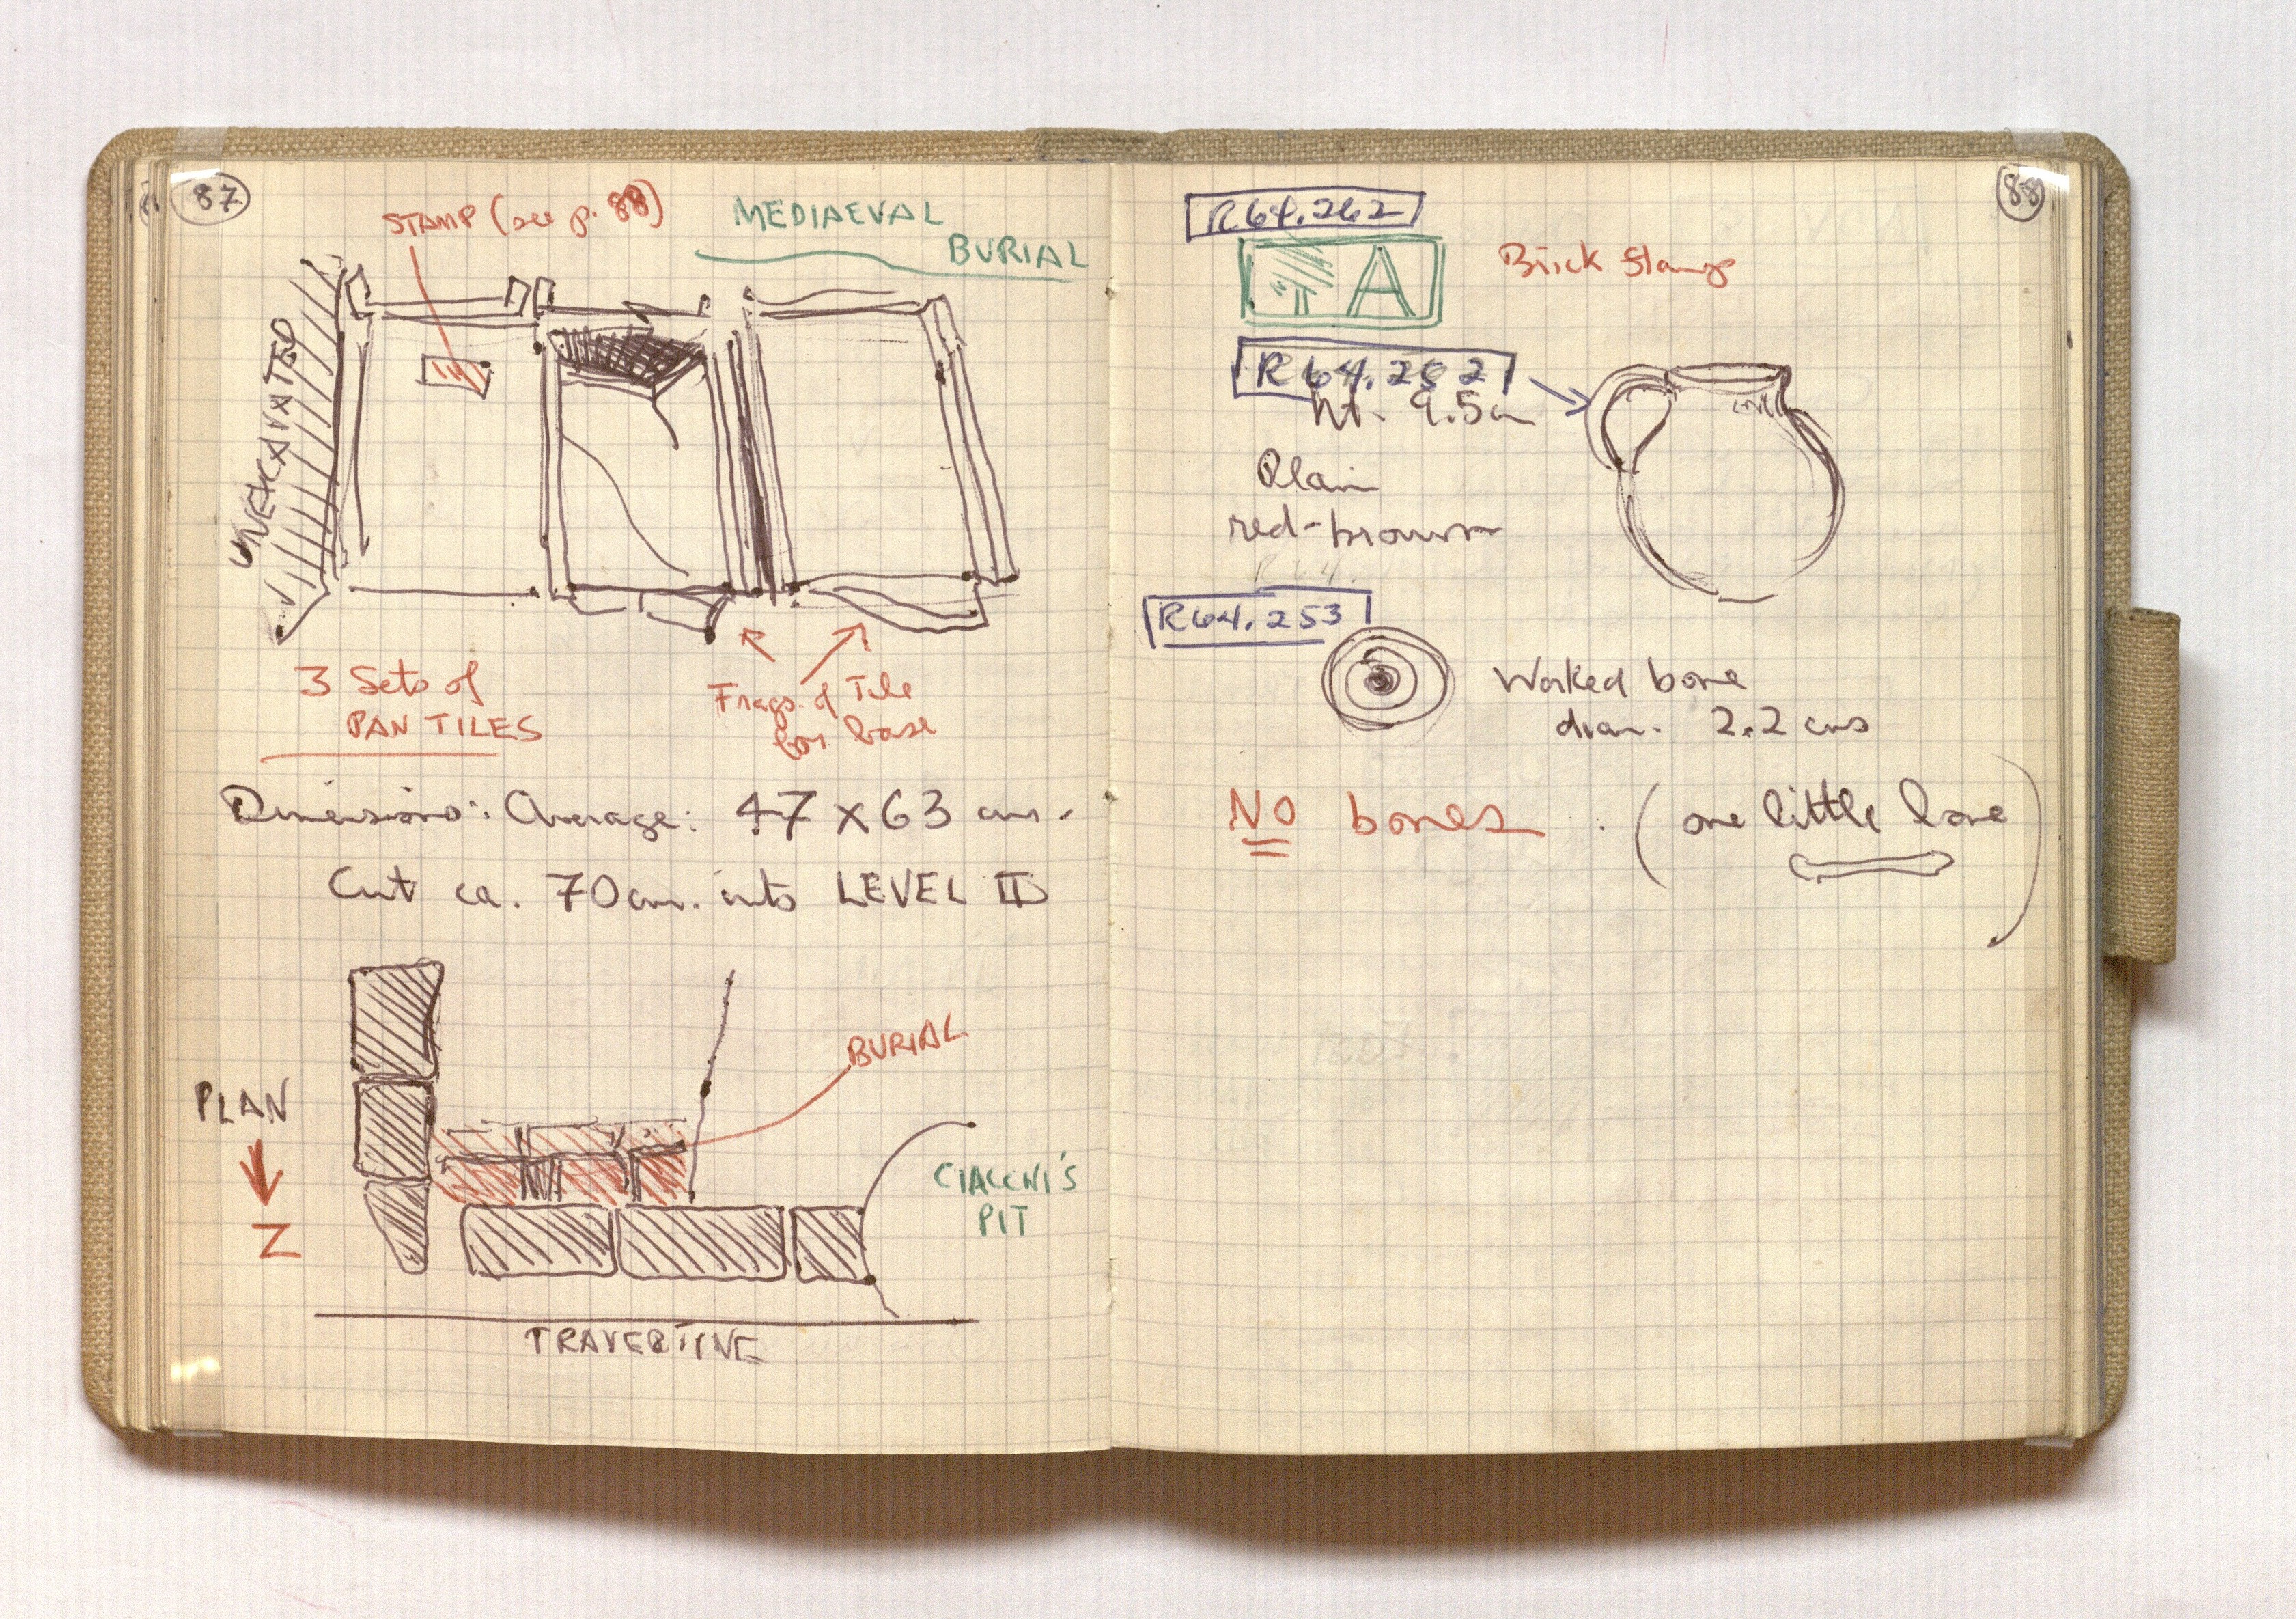 87
STAMP (see p. 88)
MEDIAEVAL
BURIAL
UNEXCAVATED
3 Sets of
PAN TILES
Frags. of Tile
for base
Dimensions: Average: 47 x 63 cm.
Cut ca. 70 cm. into LEVEL II
BURIAL
PLAN
CIACCHI'S
PIT
Z
TRAVERTINE
88
R64.262
A
Brick Stamp
R64.252
ht. 9.5 cm
Plain
red-brown
R64.
R64.253
Worked bone
diam. 2.2 cms
NO bones . (one little bone)